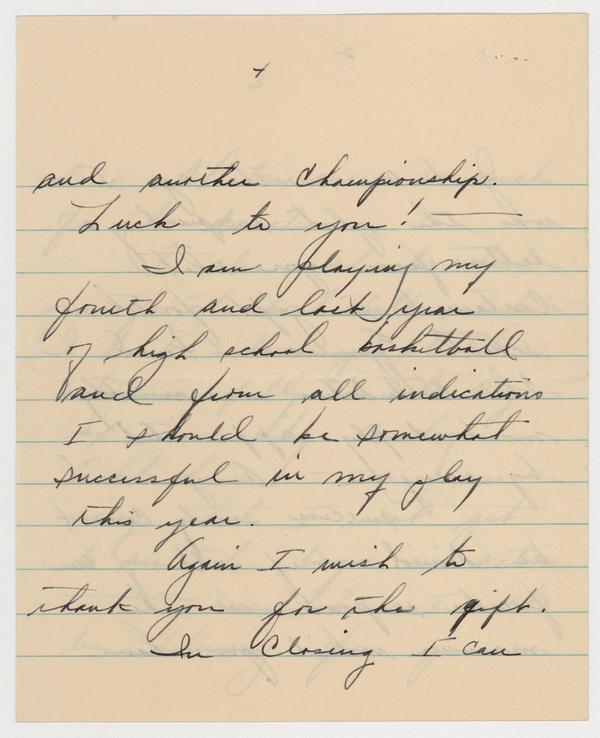 and another Championship.
Luck to you! —
I am playing my
fourth and last year
of high school basketball
and from all indications
I should be somewhat
successful in my play
this year.
Again I wish to
thank you for the gift.
In Closing I can